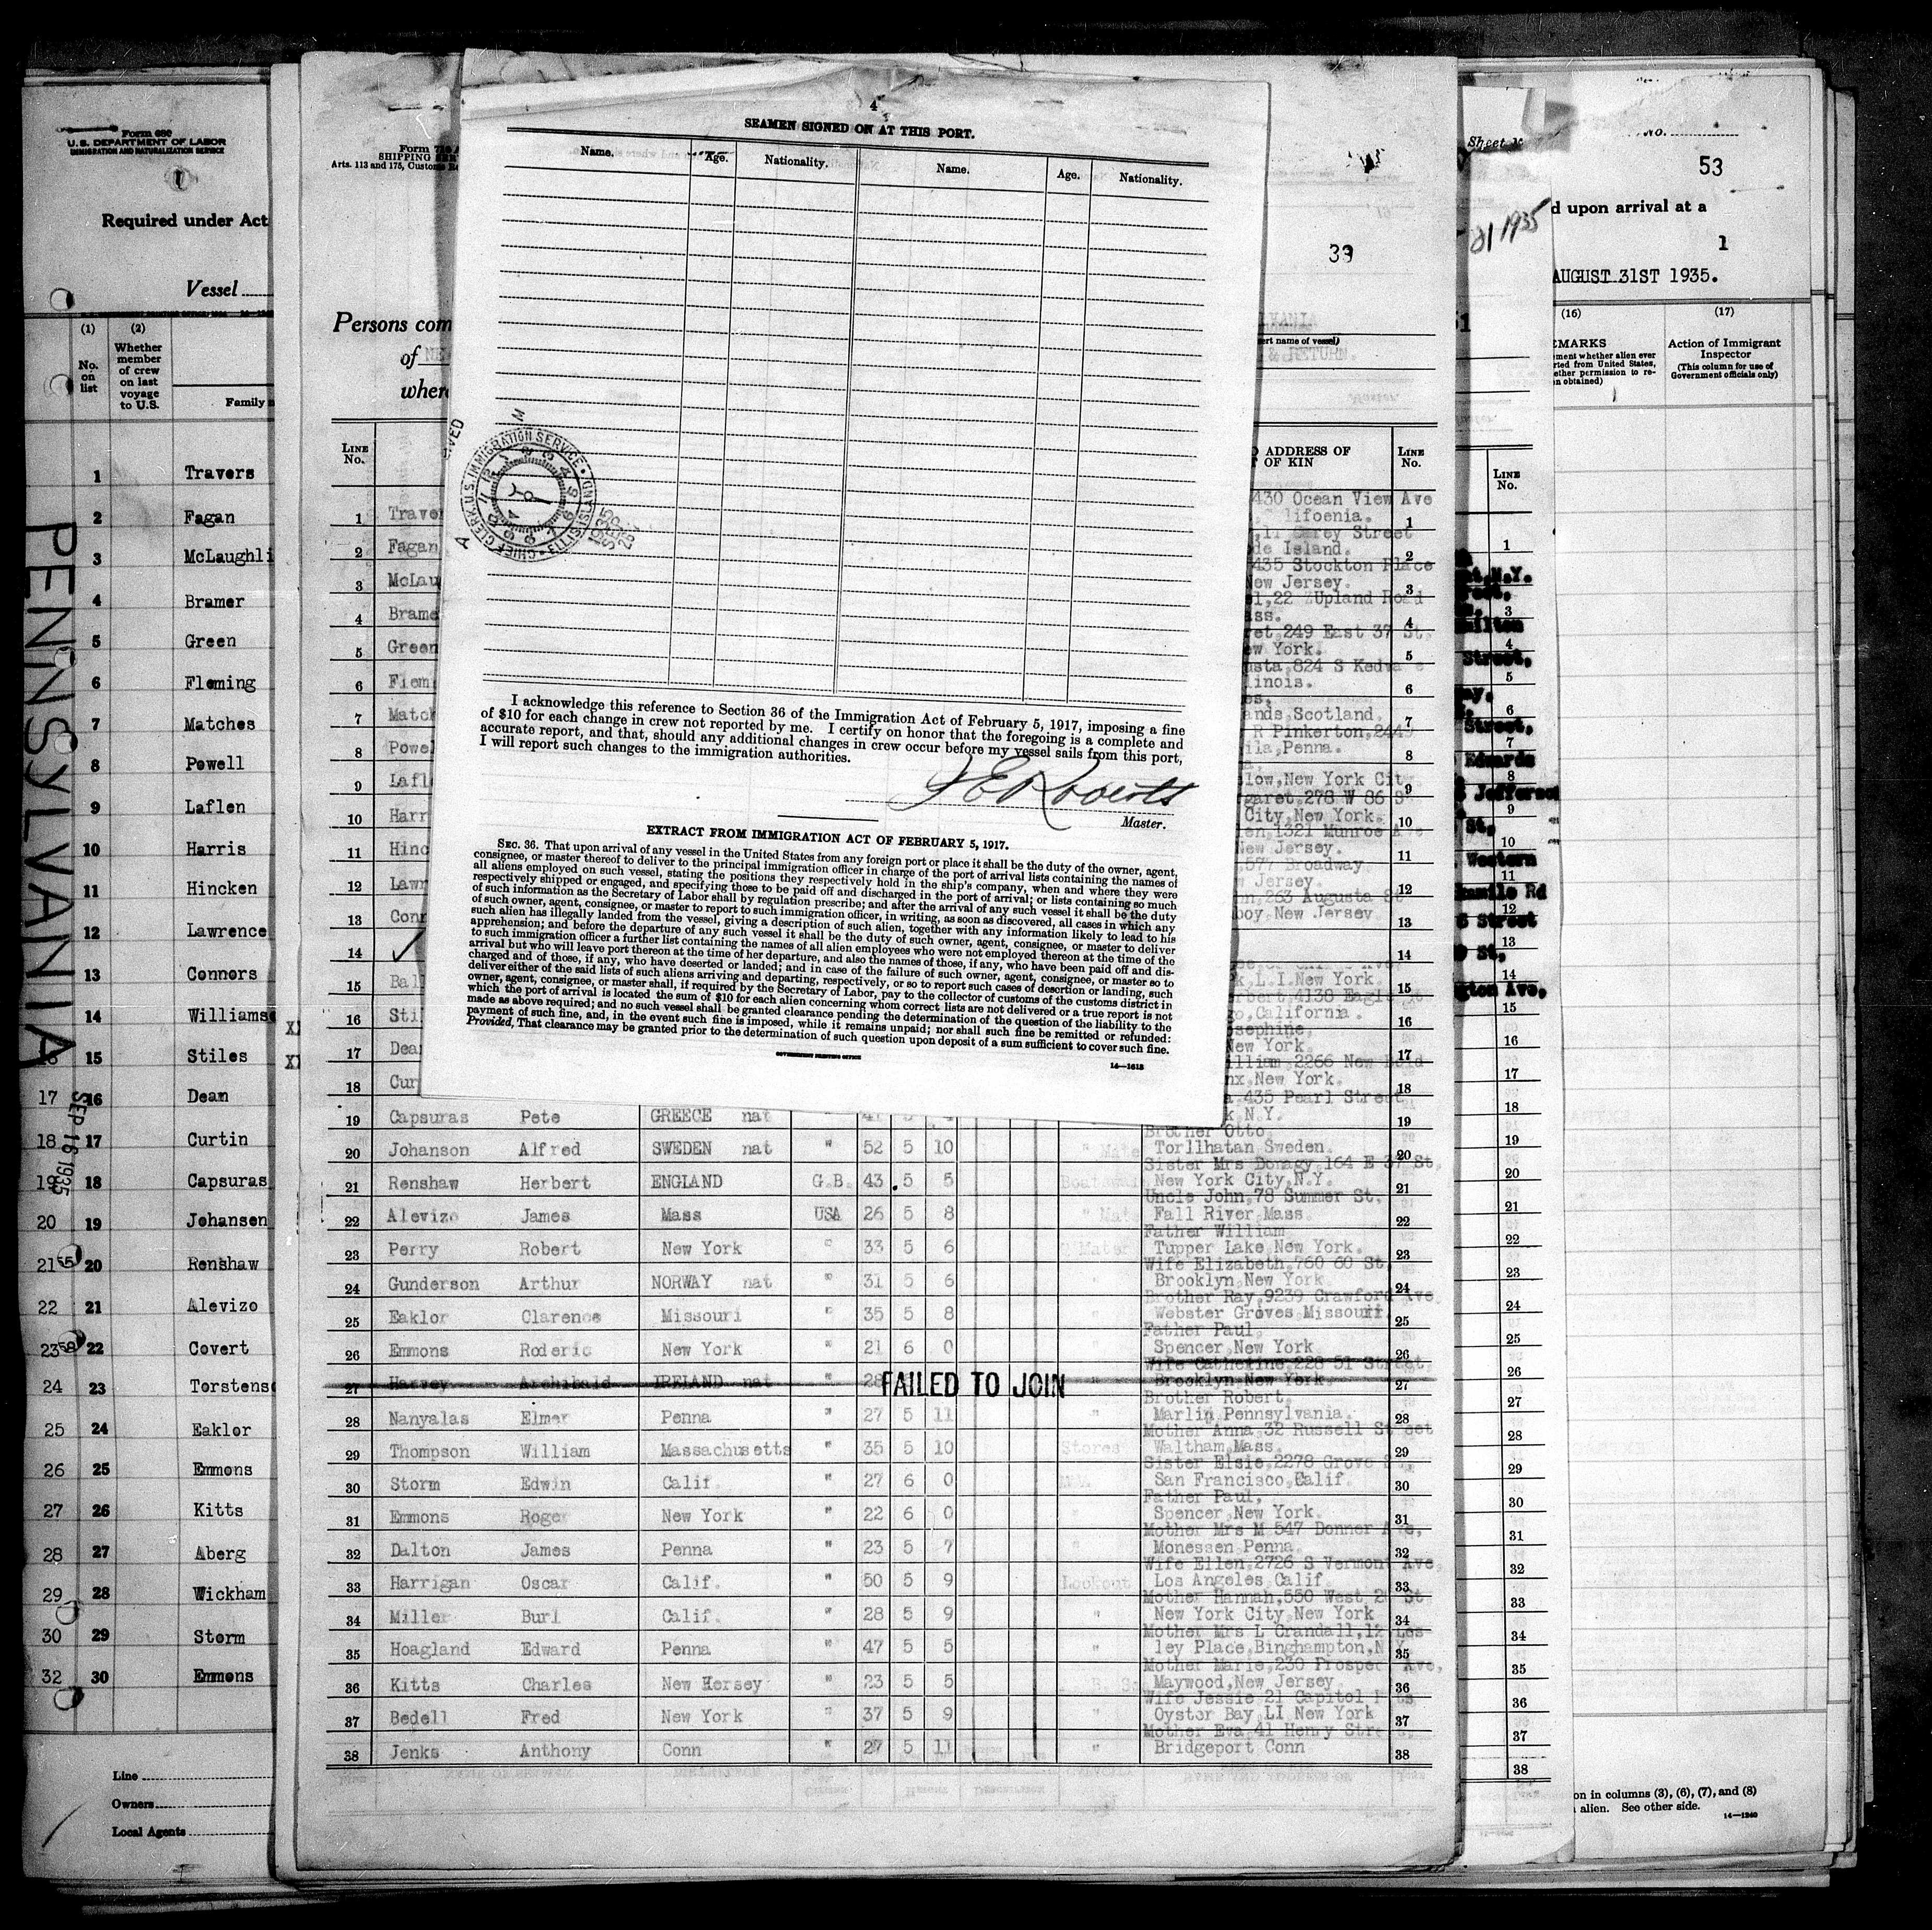 Form 680
U.S. DEPARTMENT OF LABOR
IMMIGRATION AND NATURALIZATION SERVICE
Required under Act
Vessel
(1) (2)
No. on list
Whether member of crew on last voyage to U.S.
Family
1 Travers
2 Fagan
3 McLaughli
4 Bramer
5 Green
6 Fleming
7 Matches
8 Powell
9 Laflen
10 Harris
11 Hincken
12 Lawrence
13 Connors
14 Williams
15 Stiles
17 16 Dean
18 17 Curtin
19 18 Capsuras
20 19 Johansen
21 55 20 Renshaw
22 21 Alevizo
23 58 22 Covert
24 23 Torstens
25 24 Eaklor
26 25 Emmons
27 26 Kitts
28 27 Aberg
29 28 Wickham
30 29 Storm
32 30 Emmons
PENNSYLVANIA
SEP 16 1935
Line
Owners
Local Agents
Form 710
SHIPPING
Arts. 113 and 175, Customs
Persons com
of
where
LINE No.
1 Traver
2 Fagan
3 McLau
4 Brame
5 Green
6 Flem
7 Matc
8 Powe
9 Lafl
10 Harr
11 Hinc
12 Lawr
13 Conn
14 ✓
15 Bal
16 Sti
17 Dea
18 Cur
4
SEAMEN SIGNED ON AT THIS PORT.
Name. Age. Nationality. Name. Age. Nationality.
CHIEF CLERK, U.S. IMMIGRATION SERVICE • ELLIS ISLAND
1935 SEP 25
I acknowledge this reference to Section 36 of the Immigration Act of February 5, 1917, imposing a fine
of $10 for each change in crew not reported by me. I certify on honor that the foregoing is a complete and
accurate report, and that, should any additional changes in crew occur before my vessel sails from this port,
I will report such changes to the immigration authorities.
Roberts
Master.
EXTRACT FROM IMMIGRATION ACT OF FEBRUARY 5, 1917.
SEC. 36. That upon arrival of any vessel in the United States from any foreign port or place it shall be the duty of the owner, agent,
consignee, or master thereof to deliver to the principal immigration officer in charge of the port of arrival lists containing the names of
all aliens employed on such vessel, stating the positions they respectively hold in the ship's company, when and where they were
respectively shipped or engaged, and specifying those to be paid off and discharged in the port of arrival; or lists containing so much
of such information as the Secretary of Labor shall by regulation prescribe; and after the arrival of any such vessel it shall be the duty
of such owner, agent, consignee, or master to report to such immigration officer, in writing, as soon as discovered, all cases in which any
such alien has illegally landed from the vessel, giving a description of such alien, together with any information likely to lead to his
apprehension; and before the departure of any such vessel it shall be the duty of such owner, agent, consignee, or master to deliver
to such immigration officer a further list containing the names of all alien employees who were not employed thereon at the time of the
arrival but who will leave port thereon at the time of her departure, and also the names of those, if any, who have been paid off and dis-
charged and of those, if any, who have deserted or landed; and in case of the failure of such owner, agent, consignee, or master so to
deliver either of the said lists of such aliens arriving and departing, respectively, or so to report such cases of desertion or landing, such
owner, agent, consignee, or master shall, if required by the Secretary of Labor, pay to the collector of customs of the customs district in
which the port of arrival is located the sum of $10 for each alien concerning whom correct lists are not delivered or a true report is not
made as above required; and no such vessel shall be granted clearance pending the determination of the question of the liability to the
payment of such fine, and, in the event such fine is imposed, while it remains unpaid; nor shall such fine be remitted or refunded:
Provided, That clearance may be granted prior to the determination of such question upon deposit of a sum sufficient to cover such fine.
GOVERNMENT PRINTING OFFICE
14—1618
39
& RETURN.
ADDRESS OF
OF KIN
LINE No.
430 Ocean View Ave
lifoenia. 1
Street
de Island. 2
435 Stockton Place
New Jersey. 3
22 Upland Road
ass. 4
249 East 37 St.
ew York. 5
824 S
linois. 6
ands, Scotland. 7
R Pinkerton, 244
ila, Penna. 8
low, New York City 9
garet, 278 W 86 S
City, New York. 10
1321 Munroe Ave
New Jersey. 11
577 Broadway
Jersey. 12
263 Augusta St
boy, New Jersey 13
14
k, L.I. New York. 15
4138 Eagle
o, California. 16
osephine,
New York. 17
illiam, 2266 New
nx, New York. 18
435 Pearl Street
k N.Y. 19
19 Capsuras Pete GREECE nat
Brother Otto
20 Johanson Alfred SWEDEN nat " 52 5 10 " Mate Torllhatan Sweden. 20
Sister Mrs Donagy, 164 E 37 St.
21 Renshaw Herbert ENGLAND G.B. 43 5 5 New York City, N.Y. 21
Uncle John, 78 Summer St.
22 Alevizo James Mass USA 26 5 8 " Mate Fall River Mass. 22
Father William
23 Perry Robert New York " 33 5 6 Mater Tupper Lake New York. 23
Wife Elizabeth, 760 60 St,
24 Gunderson Arthur NORWAY nat " 31 5 6 " Brooklyn, New York 24
Brother Ray, 9239 Crawford Ave.
25 Eaklor Clarence Missouri " 35 5 8 Webster Groves Missouri. 25
Father Paul,
26 Emmons Roderic New York " 21 6 0 Spencer, New York 26
Wife Catherine, 228 51 Street
27 Harvey Archibald IRELAND nat " 28 FAILED TO JOIN " Brooklyn New York. 27
Brother Robert,
28 Nanyalas Elmer Penna " 27 5 11 " Marlin Pennsylvania. 28
Mother Anna, 32 Russell Street
29 Thompson William Massachusetts " 35 5 10 Stores Waltham, Mass. 29
Sister Elsie, 2278 Grove
30 Storm Edwin Calif. " 27 6 0 San Francisco, Calif. 30
Father Paul,
31 Emmons Roger New York " 22 6 0 " Spencer, New York. 31
Mother Mrs M 547 Donner Ave,
32 Dalton James Penna " 23 5 7 " Monessen Penna. 32
Wife Ellen, 2726 S Vermont Ave
33 Harrigan Oscar Calif. " 50 5 9 Lookout Los Angeles, Calif. 33
Mother Hannah, 550 West St
34 Miller Burl Calif. " 28 5 9 " New York City, New York 34
Mother Mrs L Crandall, 12 Les
35 Hoagland Edward Penna " 47 5 5 " ley Place, Binghampton, N.Y. 35
Mother Marie, 230 Prospec Ave,
36 Kitts Charles New Hersey " 23 5 5 Maywood, New Jersey 36
Wife Jessie 21 Capitol
37 Bedell Fred New York " 37 5 9 " Oyster Bay, LI New York 37
Mother Eva, 41 Henry Stre
38 Jenks Anthony Conn " 27 5 11 Bridgeport Conn 38
Sheet
1935
LINE No.
1
N.Y.
3
4
Street,
5
6
Street,
7
Edwards
8
Jefferson
9
St,
10
Western
11
Rd
12
Street
13
St,
14
Ave,
15
16
17
18
19
20
21
22
23
24
25
26
27
28
29
30
31
32
33
34
35
36
37
38
No.
53
d upon arrival at a
1
AUGUST 31ST 1935.
(16) (17)
EMARKS
ement whether alien ever
rted from United States,
ether permission to re-
n obtained)
Action of Immigrant
Inspector
(This column for use of
Government officials only)
on in columns (3), (6), (7), and (8)
alien. See other side.
14—1240